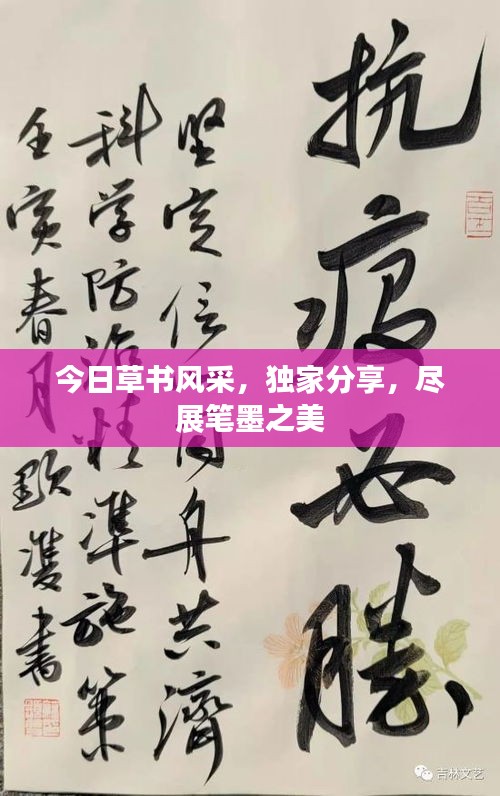 抗疫必胜
坚定信同舟共济
科学防治精準施策
壬寅春月
雙書
今日草书风采，独家分享，尽
展笔墨之美
吉林文艺